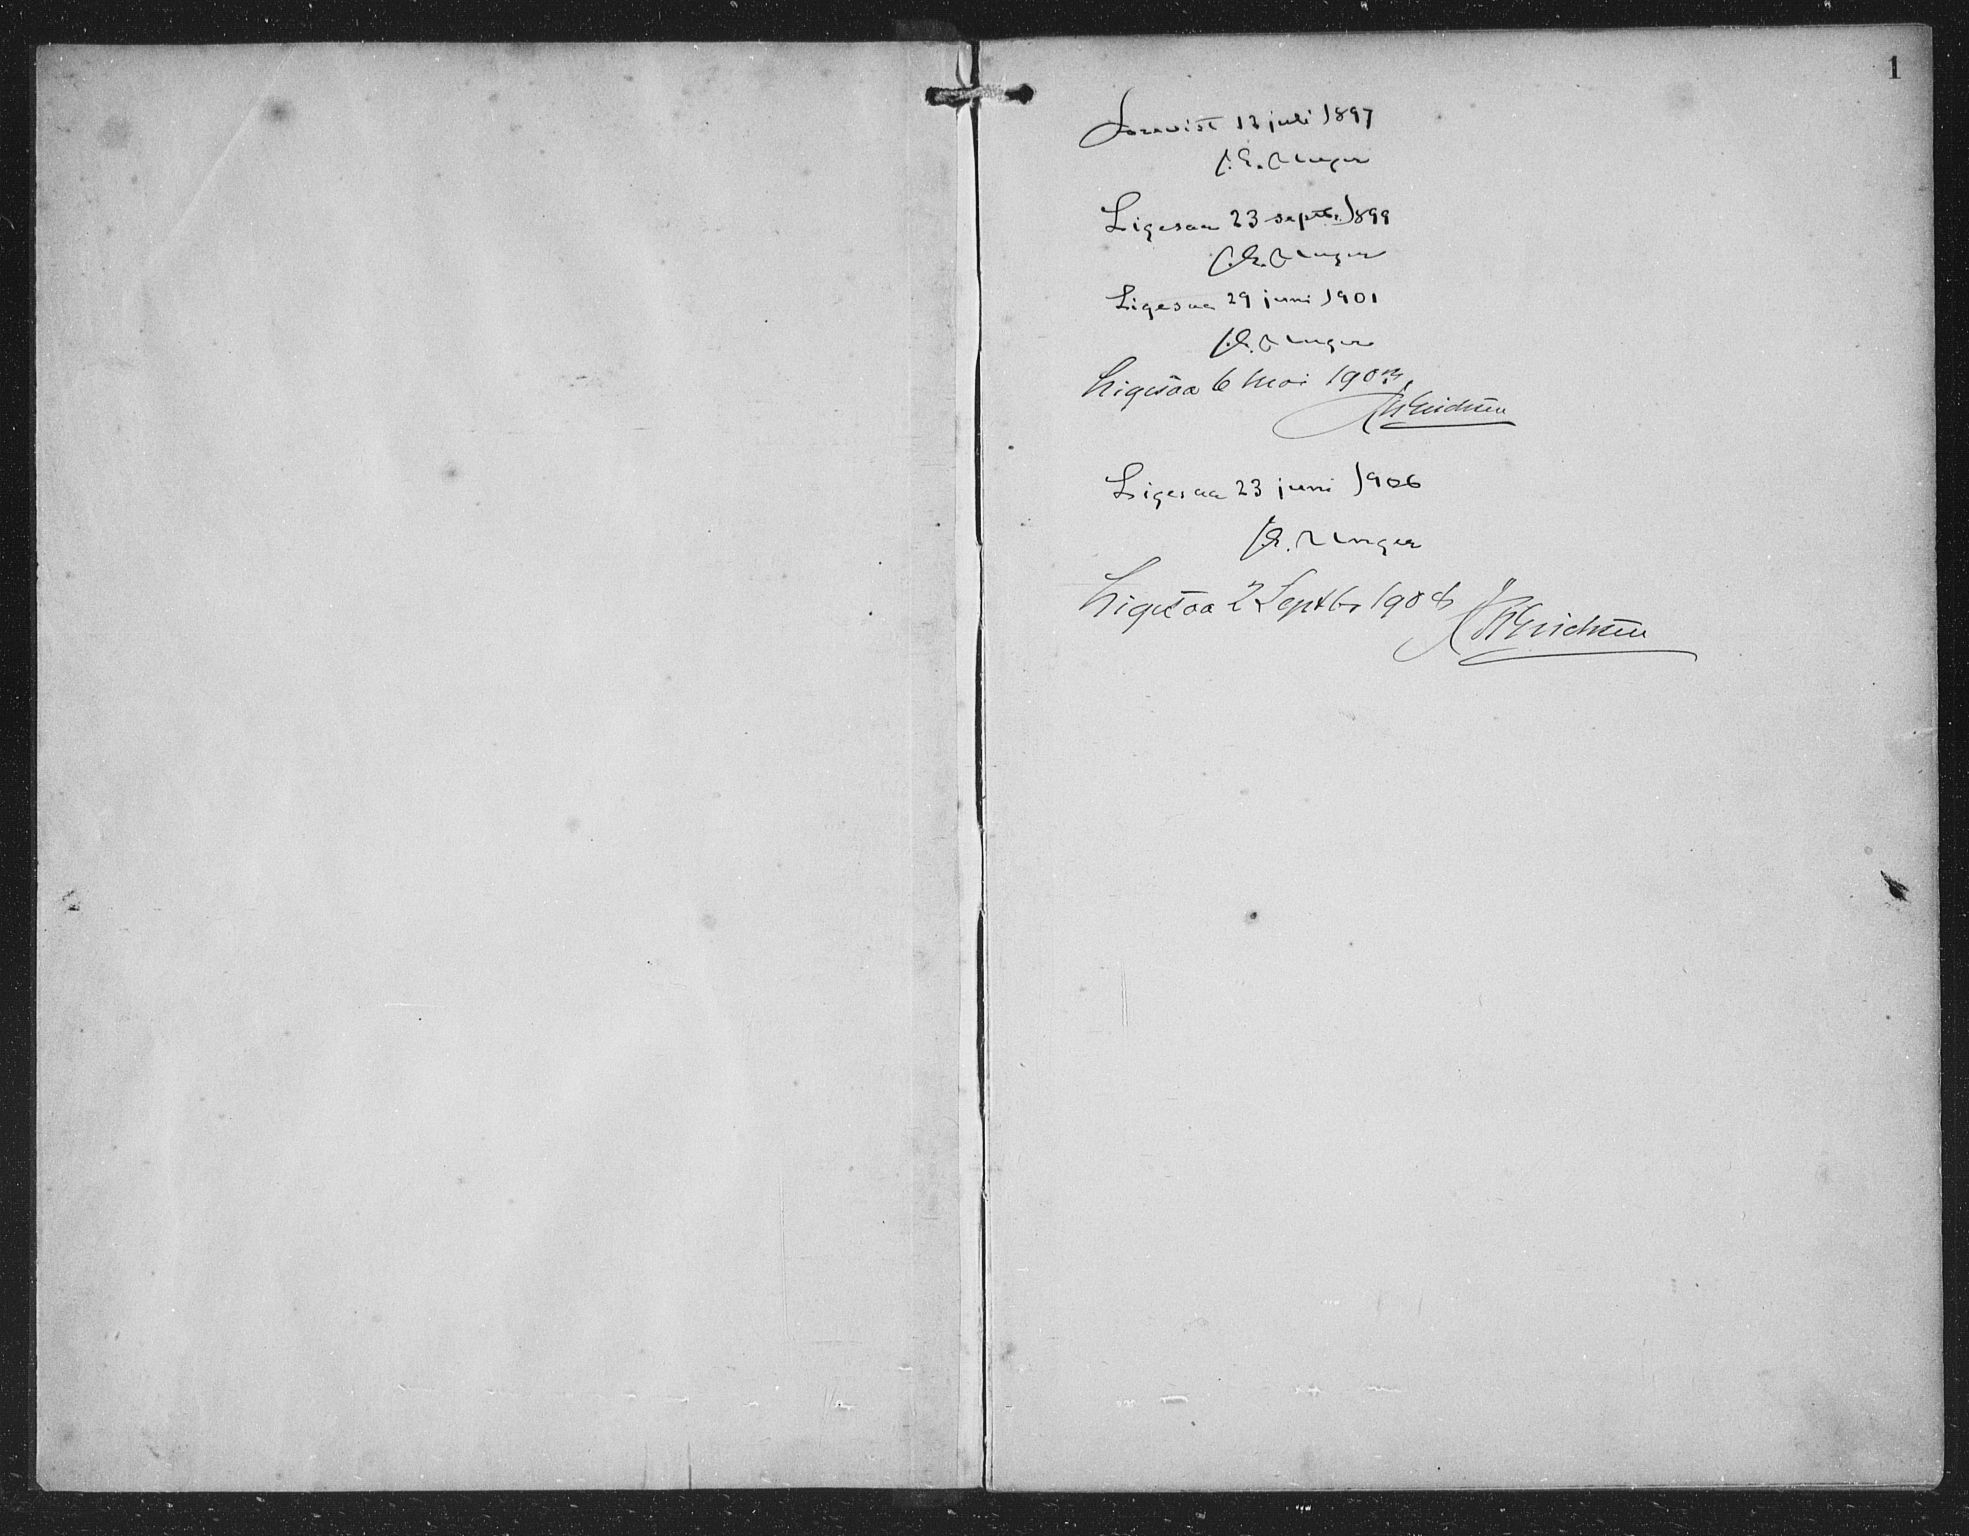 1
Forevist 13 juli 1897
J. E. Unger
Ligesaa 23 septbr. 1899
J. E. Unger
Ligesaa 29 juni 1901
J. E. Unger
Ligesaa 6 Mai
Ligesaa 23 juni 1906
J. E. Unger
Ligesaa 2 Septbr 1908